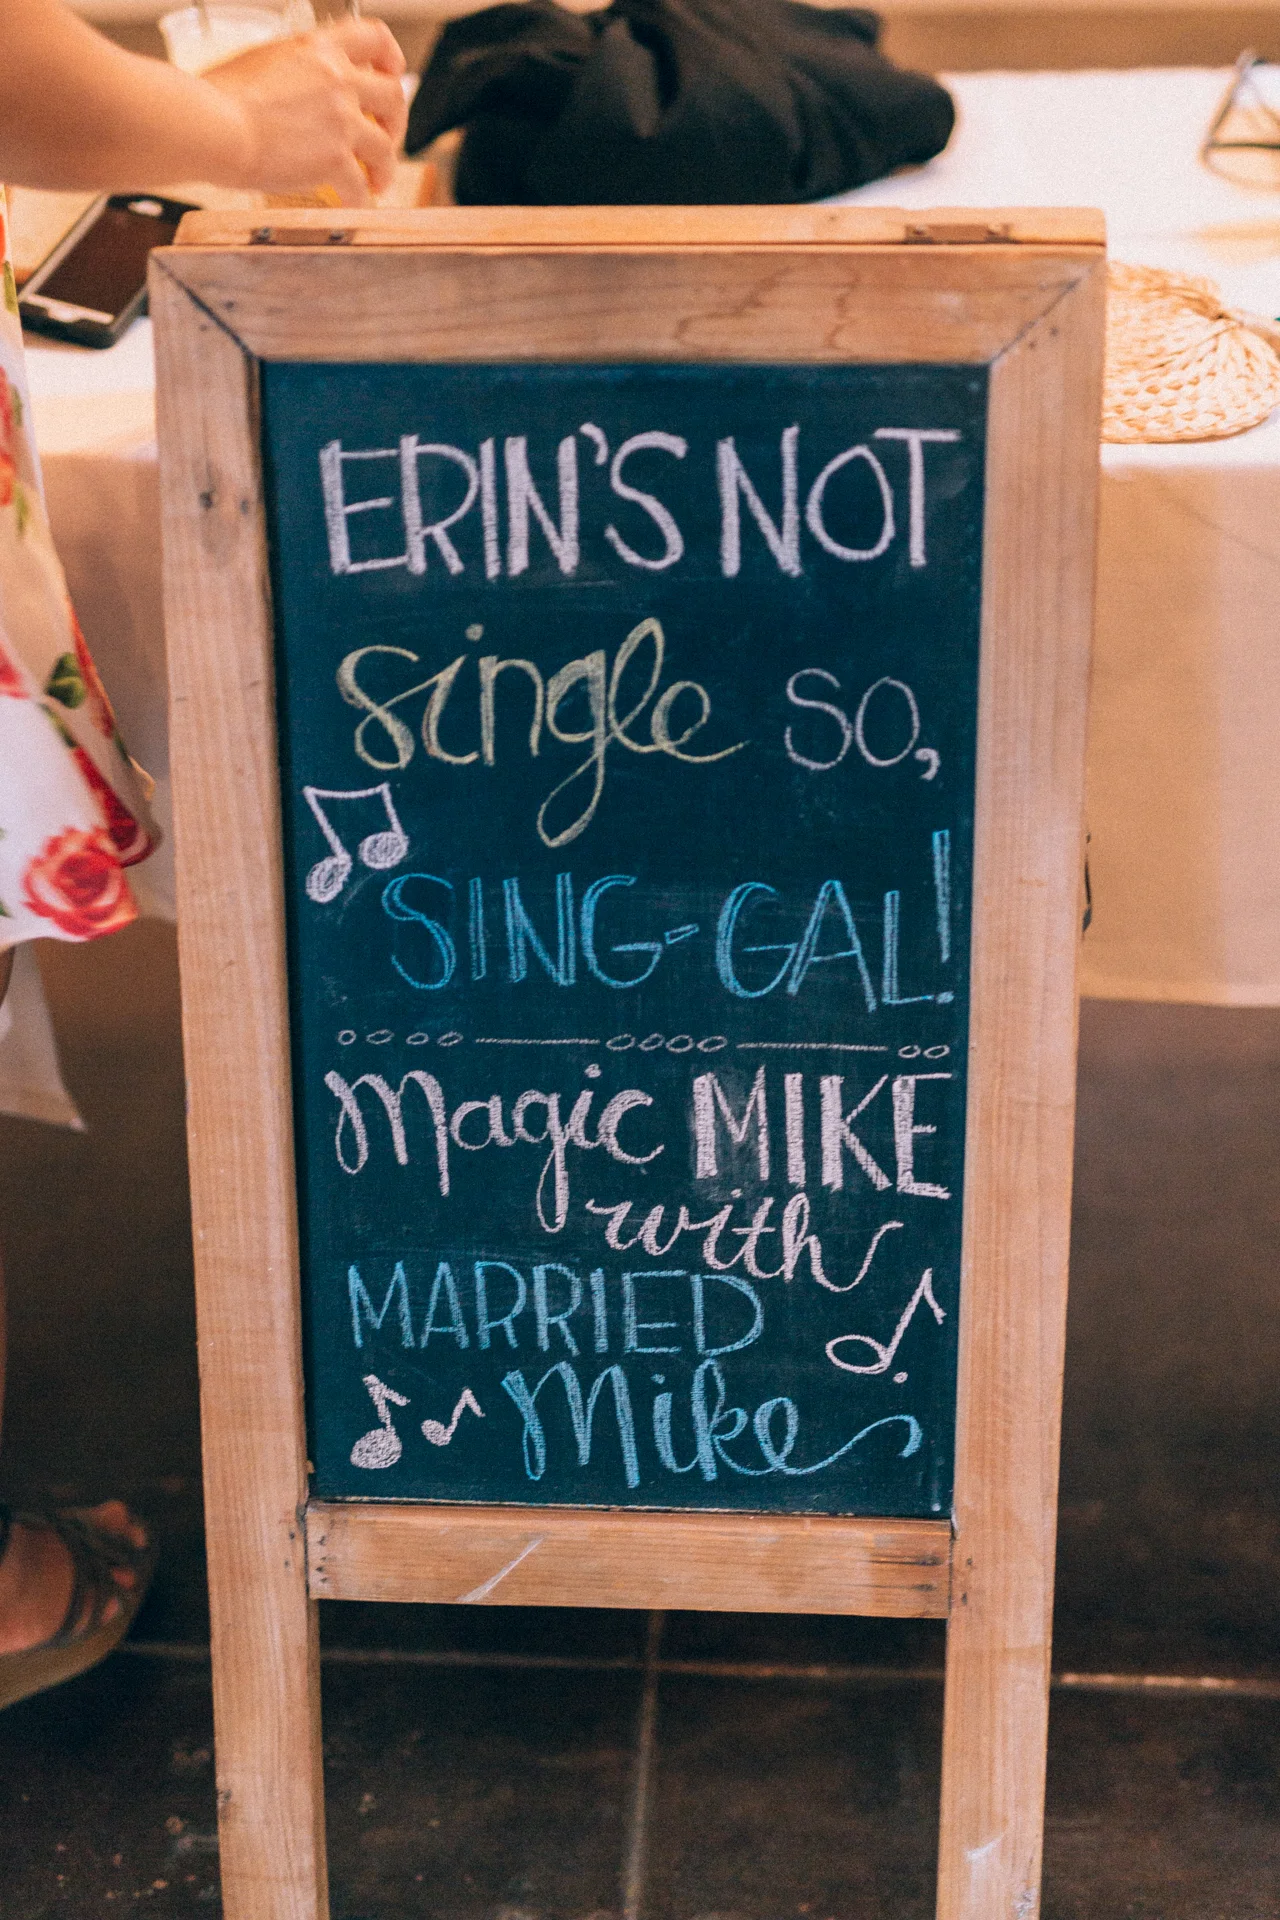 ERIN'S NOT
single so,
SING-GAL!
Magic MIKE
with
MARRIED
Mike